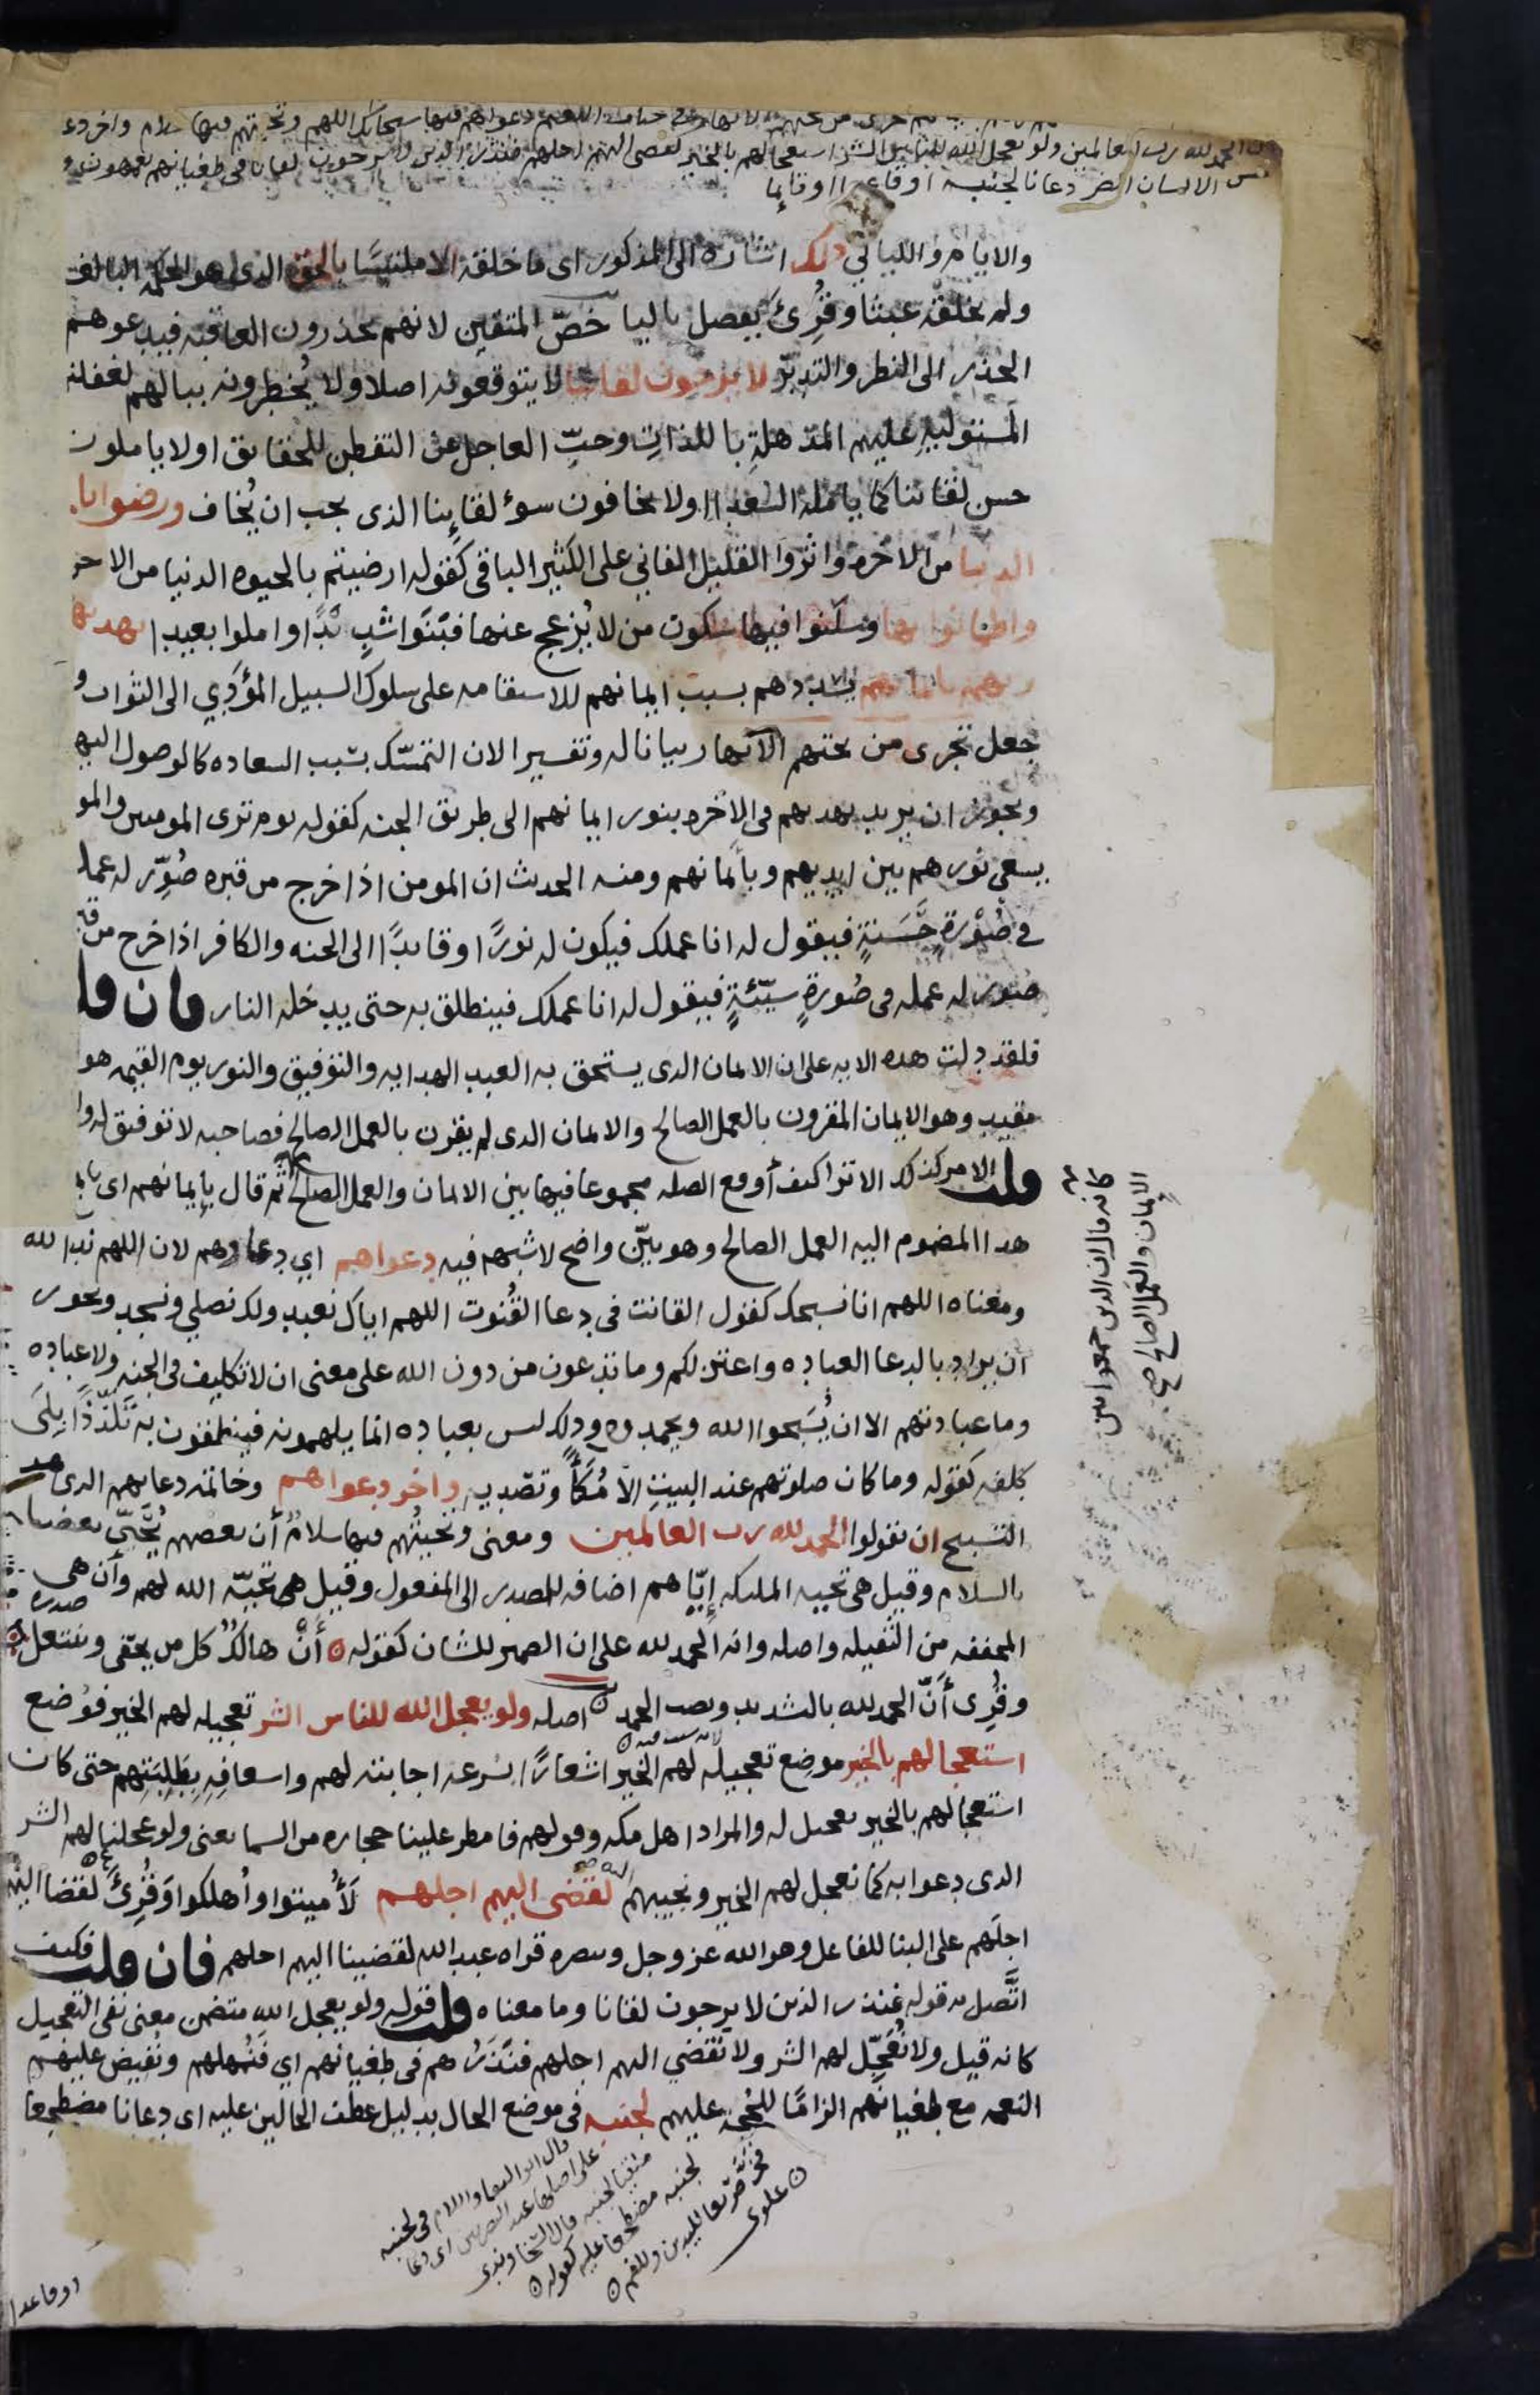 تجرى من تحتهم الانهار فى جنات النعيم دعواهم فيها سبحانك اللهم وتحيتهم فيها سلام واخر دعو
الحمد لله رب العالمين ولو يعجل الله للناس الشر استعجالهم بالخير لقضى اليهم اجلهم فنذر الذين لا يرجون لقانا فى طغيانهم يعمهون و
مس الانسان الضر دعانا لجنبه اوقاعدا اوقايما
والايام والليالي ذلك اشاره الى المذكور اى ما خلقه الا ملتبسا بالحق الذى هو الحكمه البالغه
ولم يخلقه عبثا وقُرِئ يفصل باليا خصّ المتقين لانهم يحذرون العاقبه فيدعوهم
الحذر الى النظر والتدبّر لا يرجون لقانا لا يتوقعونه اصلا ولا يُخطِرونه ببالهم لغفلته
المستوليةِ عليهم المذهلةِ باللذاتِ وحبّ العاجل عن التفطن للحقايق اولا ياملون
حسن لقائنا كما يامله السعدا اولا يخافون سوء لقاينا الذى يجب ان يُخاف ورضوا با
الدنيا من الاخره واثروا القليل الفاني على الكثير الباقى كقوله ارضيتم بالحيوه الدنيا من الاخر
واطمانوا بها وسكنوا فيها سكون من لا يُزعج عنها فبَنَوا شديدًا واملوا بعيدا يهديهم
ربهم بايمانهم يسددهم بسبب ايمانهم للاستقامه على سلوك السبيل المؤدي الى الثواب و
جعل تجرى من تحتهم الانهار بيانا له وتفسيرا لان التمسّك بسبب السعاده كالوصول اليها
ويجوز ان يريد يهديهم فى الاخره بنور ايمانهم الى طريق الجنه كقوله يوم ترى المومنين والمو
يسعى نورهم بين ايديهم وبأيمانهم ومنه الحديث ان المومن اذا خرج من قبره صُوِّر له عمله
فى صُوْرةٍ حَسَنةٍ فيقول له انا عملك فيكون له نورًا وقايدًا الى الجنه والكافر اذا خرج من قبر
صُور له عمله فى صُورةٍ سيّئةٍ فيقول له انا عملك فينطلق به حتى يدخله النار فان قل
فلقد دلت هذه الايه على ان الايمان الذى يستحق به العبد الهدايه والتوفيق والنور يوم القيمه هو
مقيد وهو الايمان المقرون بالعمل الصالح والايمان الذى لم يقرن بالعمل الصالح فصاحبه لا توفيق له ولا
قلت الامر كذلك الا ترا كيف أوقع الصله مجموعا فيها بين الايمان والعمل الصالح ثم قال بإيمانهم اى بايما
هذا المضموم اليه العمل الصالح وهو بيّن واضح لا شبهه فيه دعواهم اي دعاوهم لان اللهم ندا لله
ومعناه اللهم انا نسبحك كقول القانت فى دعا القُنوت اللهم اياك نعبد ولك نصلي ونسجد ويجوز
ان يراد بالدعا العباده واعتزلكم وما تدعون من دون الله على معنى ان لا تكليف فى الجنه ولا عباده
وما عبادتهم الا ان يُسَبحوا الله ويحمدوه وذلك ليس بعباده انما يلهمونه فينطقون به تَلذّذًا بلا
كلفه كقوله وما كان صلوتهم عند البيت الا مُكاًء وتصديه واخر دعواهم وخاتمه دعايهم الذى هو
التسبيح ان يقولوا الحمد لله رب العالمين ومعنى وتحيتُهم فيها سلامٌ أن بعضهم يُحَيّى بعضا
بالسلام وقيل هى تحيه المليكه إيّاهم اضافه للمصدر الى المفعول وقيل هى تحيّه الله لهم وأن هى
المخففه من الثقيله واصله وانه الحمد لله على ان الضمير للشان كقوله أنْ هالكٌ كل من يحفى وينتعل
وقُرِى أنَّ الحمد لله بالتشديد ونصب الحمد اصله ولو يعجل الله للناس الشر تعجيله لهم الخير فوُضع
استعجالهم بالخير موضع تعجيله لهم الخير اشعارًا بسرعه اجابته لهم واسعافِهِ بِطَلِبَتِهم حتى كان
استعجالهم بالخير تعجيل له والمراد اهل مكه وقولهم فامطر علينا حجاره من السما يعنى ولو عجلنا لهم الشر
الذى دعوا به كما نعجل لهم الخير ونجيبهم لقضى اليهم اجلهم لأُميتوا وأُهلكوا وقُرِئ لقضا اليهم
اجلَهم على البنا للفاعل وهو الله عز وجل وينصره قراه عبد الله لقضينا اليهم اجلهم فان قلت فكيف
اتَّصل به قوله فنذر الذين لا يرجون لقانا وما معناه قلت قوله ولو يعجل الله متضمن معنى نفى التعجيل
كانه قيل ولا نُعَجّل لهم الشر ولا نقضي اليهم اجلهم فنَذَرُهم فى طغيانهم اي فنُمهلهم ونُفيض عليهم
النعمه مع طغيانهم الزامًا للحُجه عليهم لجنبه فى موضع الحال بدليل عطف الحالين عليه اى دعانا مضطجعا
كانه قال ان الذين جمعوا بين
الايمان والعمل الصالح صح
قال ابو البقا واللام فى لجنبه
على اصلها عند البصريين اى دعا
ملقيا لجنبه قال السخاوندى
لجنبه مضطجعا عليه كقوله
فخر صريعا لليدين وللفم
علوى
اوقاعدا